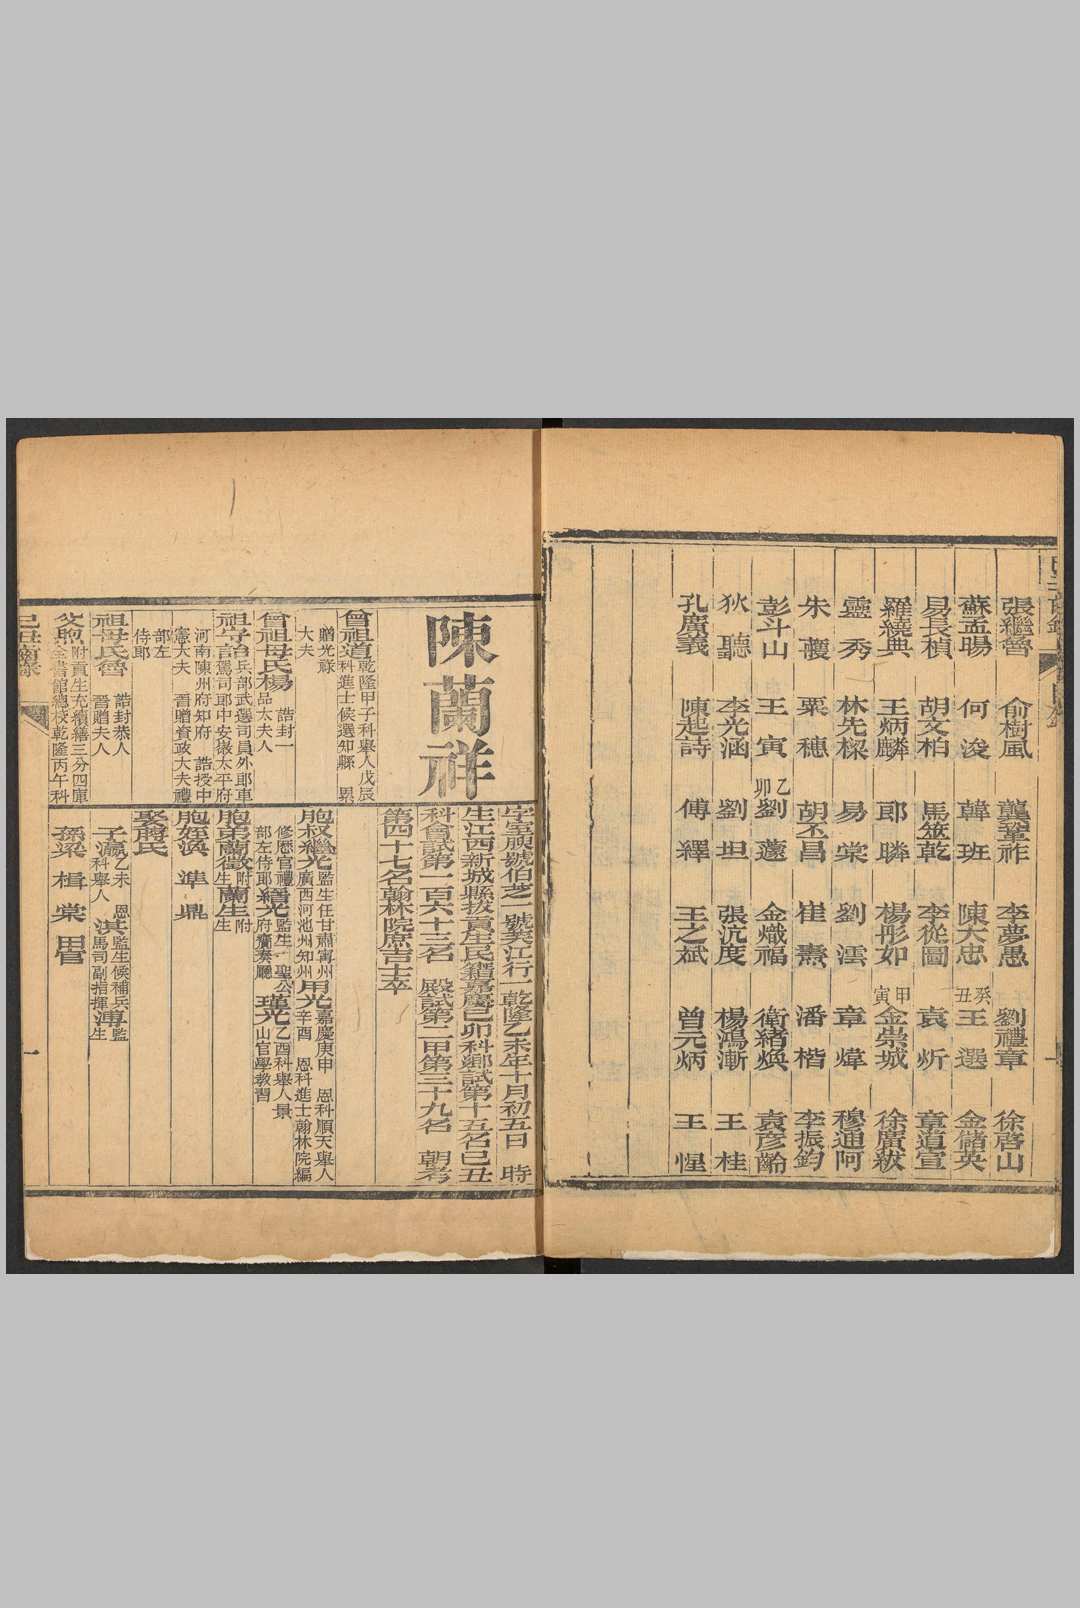 張繼魯 俞樹風 龔鞏祚 李夢愚 劉禮章 徐啓山
蘇孟暘 何浚 韓班 陳大忠 癸丑 王選 金儲英
易長楨 胡文柏 馬筮乾 李從圖 袁炘 章道宣
羅繞典 王炳麟 郎瞵 楊彤如 甲寅 金崇城 徐廣紱
靈秀 林先樑 易棠 劉澐 章煒 穆迪阿
朱虁 粟穗 胡丕昌 崔燾 潘楷 李振鈞
彭斗山 王寅 乙卯 劉薳 金熾福 衛緒煥 袁彥齡
狄聽 李光涵 劉坦 張沆度 楊鴻漸 王桂
孔廣義 陳起詩 傅繹 王之斌 曾元炳 王惺
陳蘭祥
曾祖道 乾隆甲子科舉人戊辰科進士候選知縣 累
贈光祿大夫
曾祖母氏楊 誥封一品太夫人
祖守詒 兵部武選司員外郎車駕司郎中安徽太平府
河南陳州府知府 誥授中憲大夫 晉贈資政大夫禮
部左侍郎
祖母氏魯 誥封恭人 晉贈夫人
父煦 附貢生充續繕三分四庫全書館總校乾隆丙午科
己丑同年錄
字 號伯芝一號芙江行一乾隆乙未年十月初五日 時
生江西新城縣拔貢生民籍嘉慶己卯科鄉試第十五名己丑
科會試第一百六十三名 殿試第二甲第三十九名 朝考
第四十七名翰林院庶吉士卒
胞叔繼光 監生任甘肅甯州廣西河池州知州 用光 嘉慶庚申 恩科順天舉人辛酉 恩科進士翰林院編
修歷官禮部左侍郎 繕光 監生 聖公府齎奏廳 瑾光 乙酉科舉人景山官學教習
胞弟蘭徵 附生 蘭生 附生
胞姪渙 準 鼎
娶蔣氏
子瀛 乙未 恩科舉人 淇 監生候補兵馬司副指揮 溥 監生
孫梁 楫 棠 田晉
一